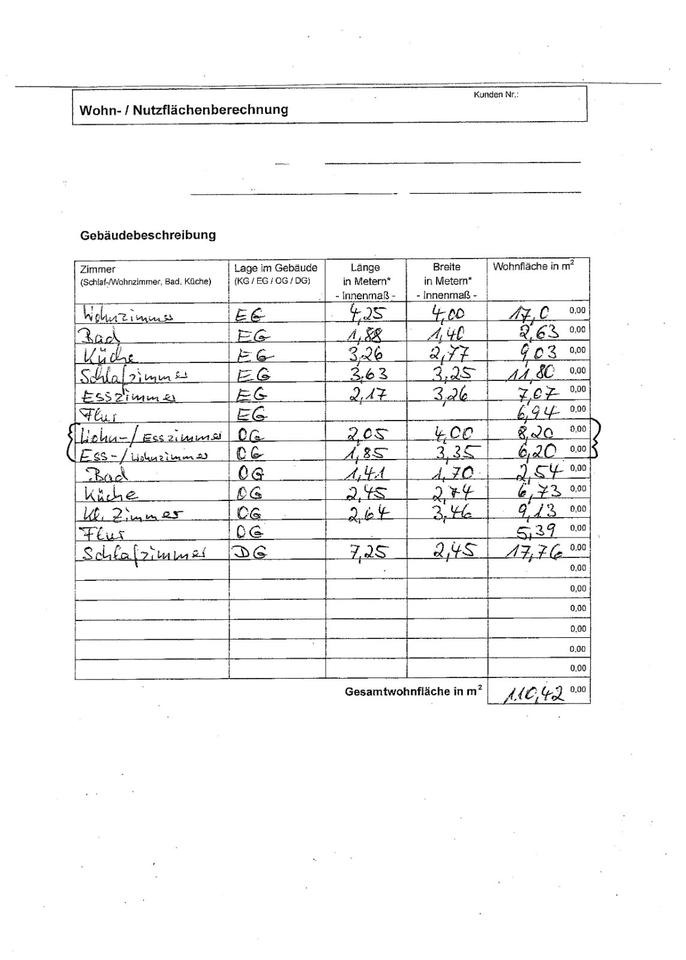 Kunden Nr.:
Wohn- / Nutzflächenberechnung
Gebäudebeschreibung
Zimmer Lage im Gebäude Länge Breite Wohnfläche in m²
(Schlaf-/Wohnzimmer, Bad, Küche) (KG / EG / OG / DG) in Metern* in Metern*
- Innenmaß - - Innenmaß -
Wohnzimmer EG 4,25 4,00 17,0 0,00
Bad EG 1,88 1,40 2,63 0,00
Küche EG 3,26 2,77 9,03 0,00
Schlafzimmer EG 3,63 3,25 11,80 0,00
Esszimmer EG 2,17 3,26 7,07 0,00
Flur EG 6,94 0,00
Wohn-/Esszimmer OG 2,05 4,00 8,20 0,00
Ess-/Wohnzimmer OG 1,85 3,35 6,20 0,00
Bad OG 1,41 1,70 2,54 0,00
Küche OG 2,45 2,74 6,73 0,00
Kl. Zimmer OG 2,64 3,46 9,13 0,00
Flur OG 5,39 0,00
Schlafzimmer DG 7,25 2,45 17,76 0,00
0,00
0,00
0,00
0,00
0,00
0,00
Gesamtwohnfläche in m² 110,42 0,00